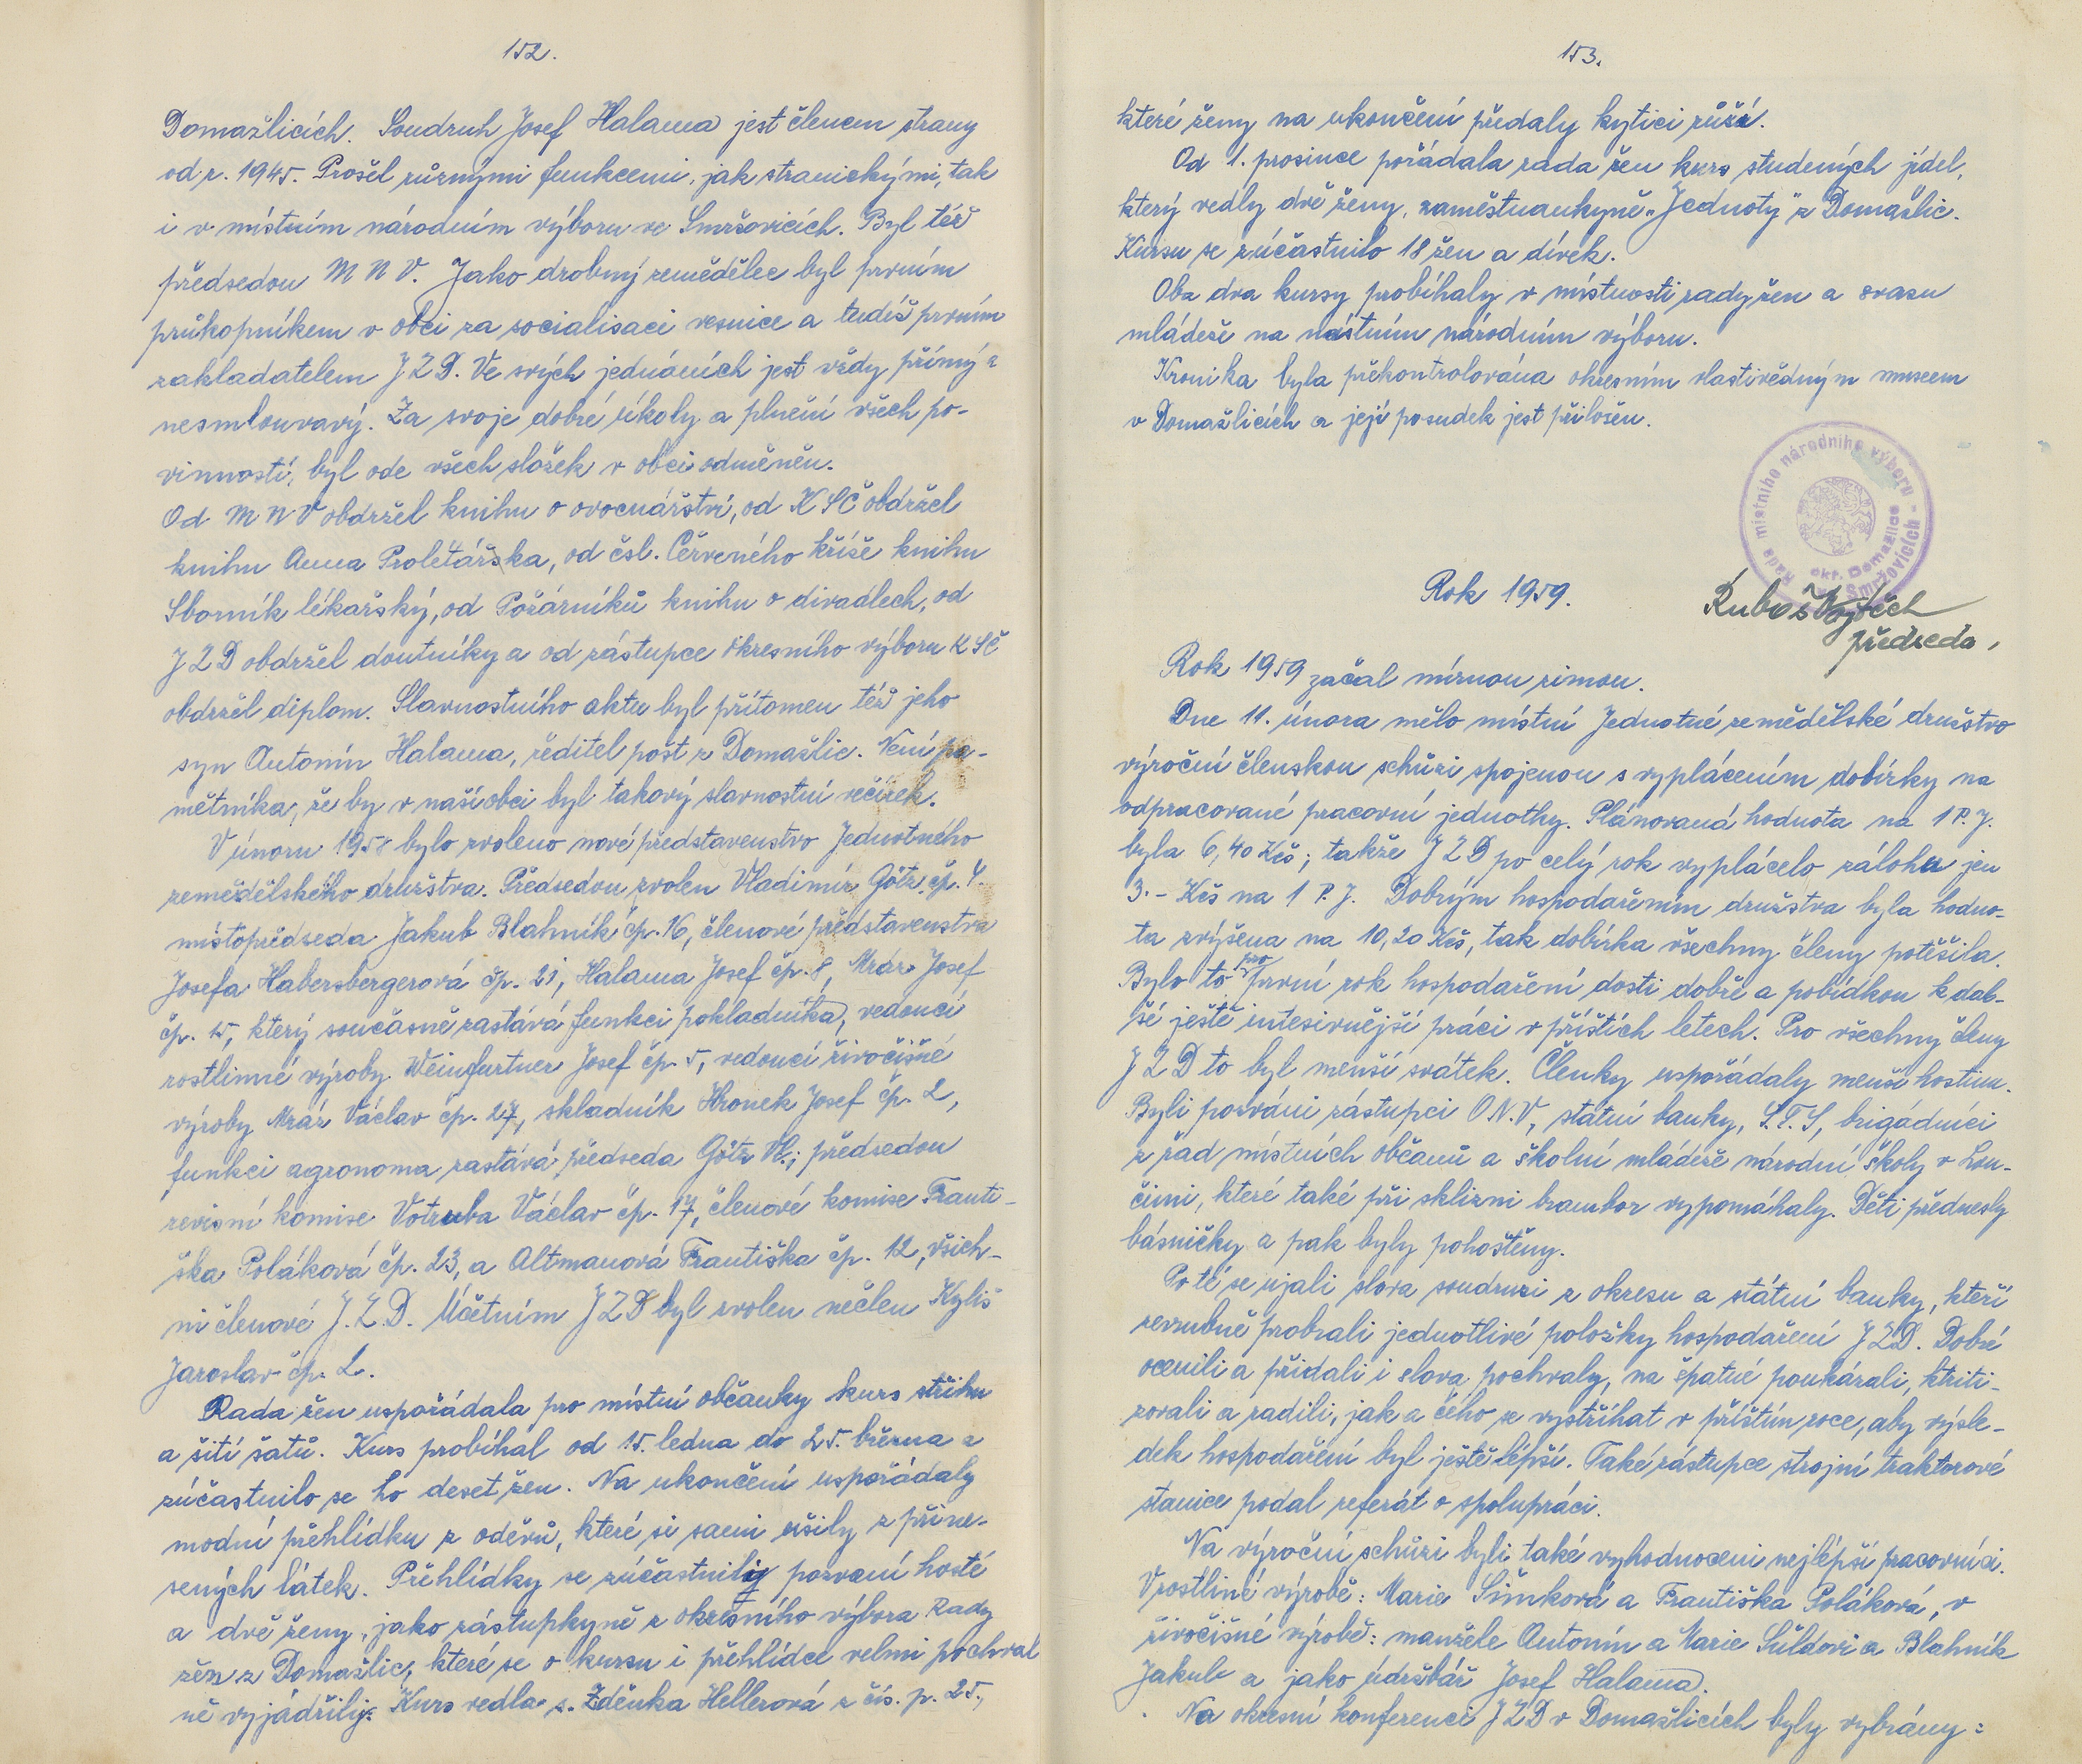 152.
Domažlicích. Soudruh Josef Halama jest členem strany
od r. 1945. Prošel různými funkcemi, jak stranickými, tak
i v místním národním výboru ve Smržovicích. Byl též
předsedou M N V. Jako drobný zemědělec byl prvním
průkopníkem v obci za socialisaci vesnice a tudíž prvním
zakladatelem J Z D. Ve svých jednáních jest vždy přímý a
nesmlouvavý. Za svoje dobré úkoly a plnění všech po-
vinností, byl ode všech složek v obci odměněn.
Od M N V obdržel knihu o ovocnářství, od K S Č obdržel
knihu Anna Proletářka, od čsl. Červeného kříže knihu
Sborník lékařský, od Požárníků knihu o divadlech, od
J Z D obdržel doutníky a od zástupce okresního výboru K S Č
obdržel diplom. Slavnostního aktu byl přítomen též jeho
syn Antonín Halama, ředitel pošt z Domažlic. Není pa-
mětníka, že by v naší obci byl takový slavnostní večírek.
V únoru 1958 bylo zvoleno nové představenstvo Jednotného
zemědělského družstva. Předsedou zvolen Vladimír Götz čp. 4.
místopředseda Jakub Blahník čp. 16, členové představenstva
Josefa Habersbergerová čp. 21, Halama Josef čp. 8, Mráz Josef
čp. 15, který současně zastává funkci pokladníka, vedoucí
rostlinné výroby Weinfurtner Josef čp. 5, vedoucí živočišné
výroby Mráz Václav čp. 27, skladník Hronek Josef čp. 2,
funkci agronoma zastává předseda Götz Vl.; předsedou
revisní komise Votruba Václav čp. 17, členové komise Franti-
ška Poláková čp. 23, a Altmanová Františka čp. 12, všich-
ni členové J. Z. D. Účetním J Z D byl zvolen nečlen Kyliš
Jaroslav čp. 2.
Rada žen uspořádala pro místní občanky kurs střihu
a šití šatů. Kurs probíhal od 15. ledna do 25. března a
zúčastnilo se ho deset žen. Na ukončení uspořádaly
modní přehlídku z oděvů, které si sami ušily z přine-
sených látek. Přehlídky se zúčastnily pozvaní hosté
a dvě ženy, jako zástupkyně z okresního výboru Rady
žen z Domažlic, které se o kursu i přehlídce velmi pochval
ně vyjádřily. Kurs vedla s. Zdeňka Hellerová z čís. p. 25,
153.
které ženy na ukončení předaly kytici růží.
Od 1. prosince pořádala rada žen kurs studených jídel,
který vedly dvě ženy, zaměstnankyně „Jednoty" z Domažlic.
Kursu se zúčastnilo 18 žen a dívek.
Oba dva kursy probíhaly v místnosti rady žen a svazu
mládeže na místním národním výboru.
Kronika byla překontrolována okresním vlastivědným museem
v Domažlicích a její posudek jest přiložen.
Rada místního národního výboru
Smržovicích -
okr. Domažlice
Rok 1959.
Kuboš Vojtěch
předseda,
Rok 1959 začal mírnou zimou.
Dne 11. února mělo místní Jednotné zemědělské družstvo
výroční členskou schůzi spojenou s vyplácením dobírky na
odpracované pracovní jednotky. Plánovaná hodnota na 1 P. J.
byla 6,40 Kčs; takže J Z D po celý rok vyplácelo zálohu jen
3.- Kčs na 1 P. J. Dobrým hospodařením družstva byla hodno-
ta zvýšena na 10,20 Kčs, tak dobírka všechny členy potěšila.
Bylo to pro první rok hospodaření dosti dobré a pobídkou k dal-
ší ještě intesivnější práci v příštích letech. Pro všechny členy
J Z D to byl menší svátek. Členky uspořádaly menší hostinu.
Byli pozváni zástupci O N. V, státní banky, S. T. S, brigádníci
z řad místních občanů a školní mládeže národní školy v Lou-
čimi, které také při sklizni brambor vypomáhaly. Děti přednesly
básničky a pak byly pohoštěny.
Po té se ujali slova soudruzi z okresu a státní banky, kteří
zevrubně probrali jednotlivé položky hospodaření J Z D. Dobré
ocenili a přidali i slova pochvaly, na špatné poukázali, ktriti-
zovali a radili, jak a čeho se vystříhat v příštím roce, aby výsle-
dek hospodaření byl ještě lepší. Také zástupce strojní traktorové
stanice podal referát o spolupráci.
Na výroční schůzi byli také vyhodnoceni nejlepší pracovníci.
V rostliné výrobě: Marie Šimková a Františka Poláková, v
živočišné výrobě: manžele Antonín a Marie Sůldovi a Blahník
Jakub a jako údržbář Josef Halama.
Na okresní konferenci J Z D v Domažlicích byly vybrány: